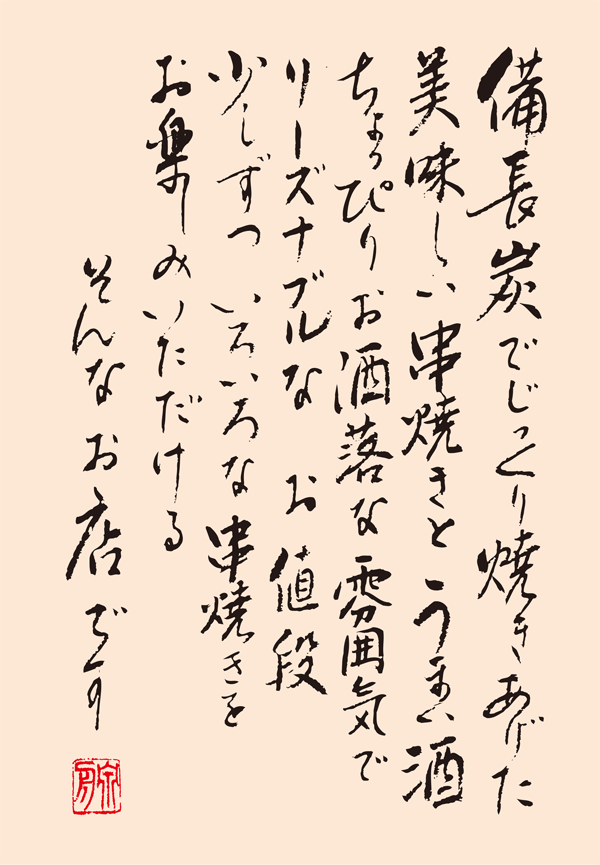 備長炭でじっくり焼きあげた
美味しい串焼きとうまい酒
ちょっぴりお洒落な雰囲気で
リーズナブルな　お値段
少しずつ　いろいろな串焼きを
お楽しみいただける
そんなお店です